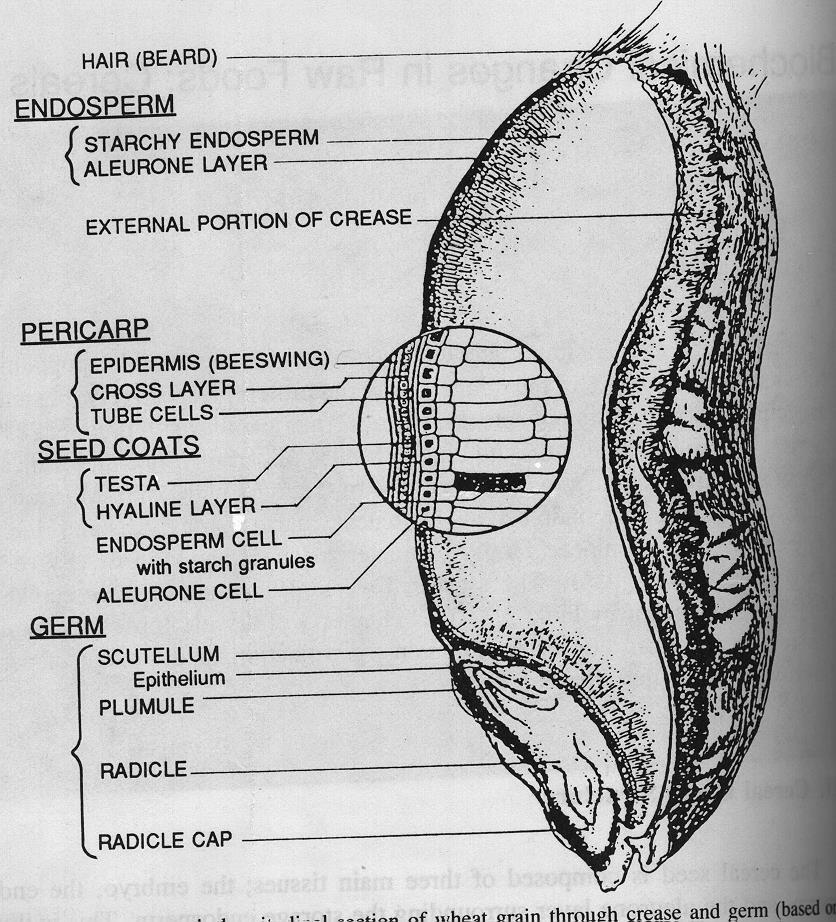 HAIR (BEARD)
ENDOSPERM
STARCHY ENDOSPERM
ALEURONE LAYER
EXTERNAL PORTION OF CREASE
PERICARP
EPIDERMIS (BEESWING)
CROSS LAYER
TUBE CELLS
SEED COATS
TESTA
HYALINE LAYER
ENDOSPERM CELL
with starch granules
ALEURONE CELL
GERM
SCUTELLUM
Epithelium
PLUMULE
RADICLE
RADICLE CAP
section of wheat grain through crease and germ (based